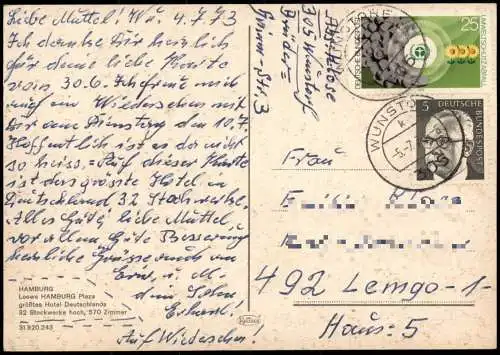 Liebe Muttel! Wu. 4.7.73
Ich danke Dir herzlich
für deine liebe Karte
vom 30.6. Ich freue mich
auf ein Wiedersehen mit
Dir am Dienstag dem 10.7.
Hoffentlich ist es da nicht
so heiss. Auf dieser Karte
ist das grösste Hotel in
Deutschland 32 Stockwerke.
Alles Gute liebe Muttel,
vor allem Gute Besserung
herzliche Grüsse auch von
u. M.
dein Sohn
Erhard.
Auf Wiedersehen!
HAMBURG
Loews HAMBURG Plaza
größtes Hotel Deutschlands
32 Stockwerke hoch, 570 Zimmer
31 820 243
Krüger
305 Wunstorf
Str. 3
25
UMWELTSCHUTZ: LÄRM
DEUTSCHE BUNDESPOST
5
DEUTSCHE
BUNDESPOST
WUNSTORF
-5.-7.
Frau
492 Lemgo-1-
Haus-5